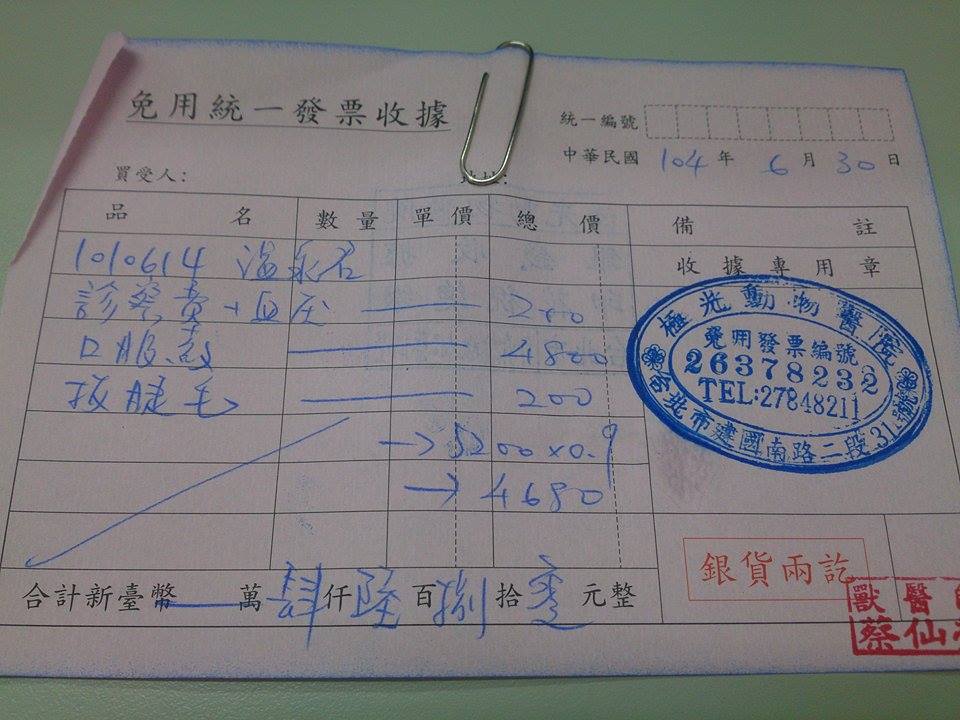 免用統一發票收據
統一編號
中華民國 104 年 6 月 30 日
買受人:
品名 數量 單價 總價 備註
收據專用章
1010614
診察費+血压 200
口服葯 4800
拔腱毛 200
→5200×0.9
→4680
極光動物醫院
免用發票編號
26378232
TEL:27848211
台北市建國南路二段31號
銀貨兩訖
合計新臺幣 萬肆仟陸百捌拾零元整
獸醫師
蔡仙